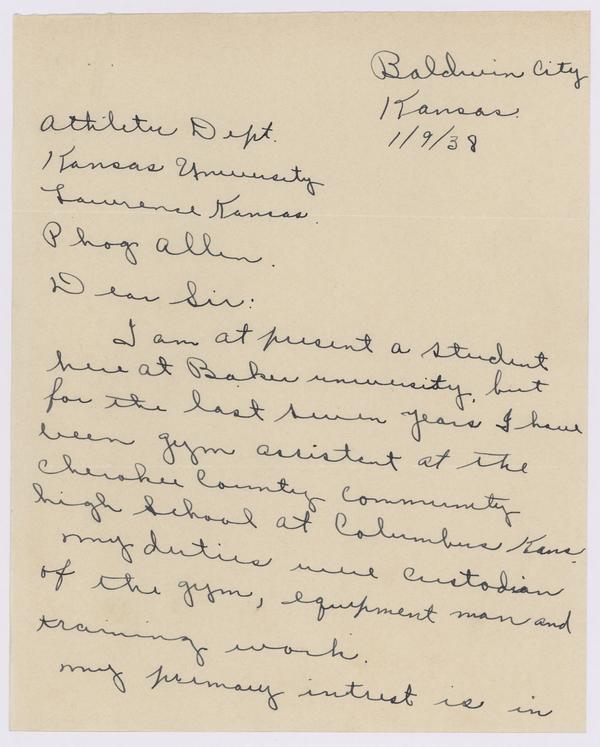 Baldwin City
Kansas.
1/9/38
Athletic Dept.
Kansas University
Lawrence Kansas.
Phog Allen.
Dear Sir:
I am at present a student
here at Baker university, but
for the last seven years I have
been gym assistent at the
Cherokee County Community
high School at Columbus Kans.
my duties were custodian
of the gym, equipment man and
training work.
my primary intrest is in